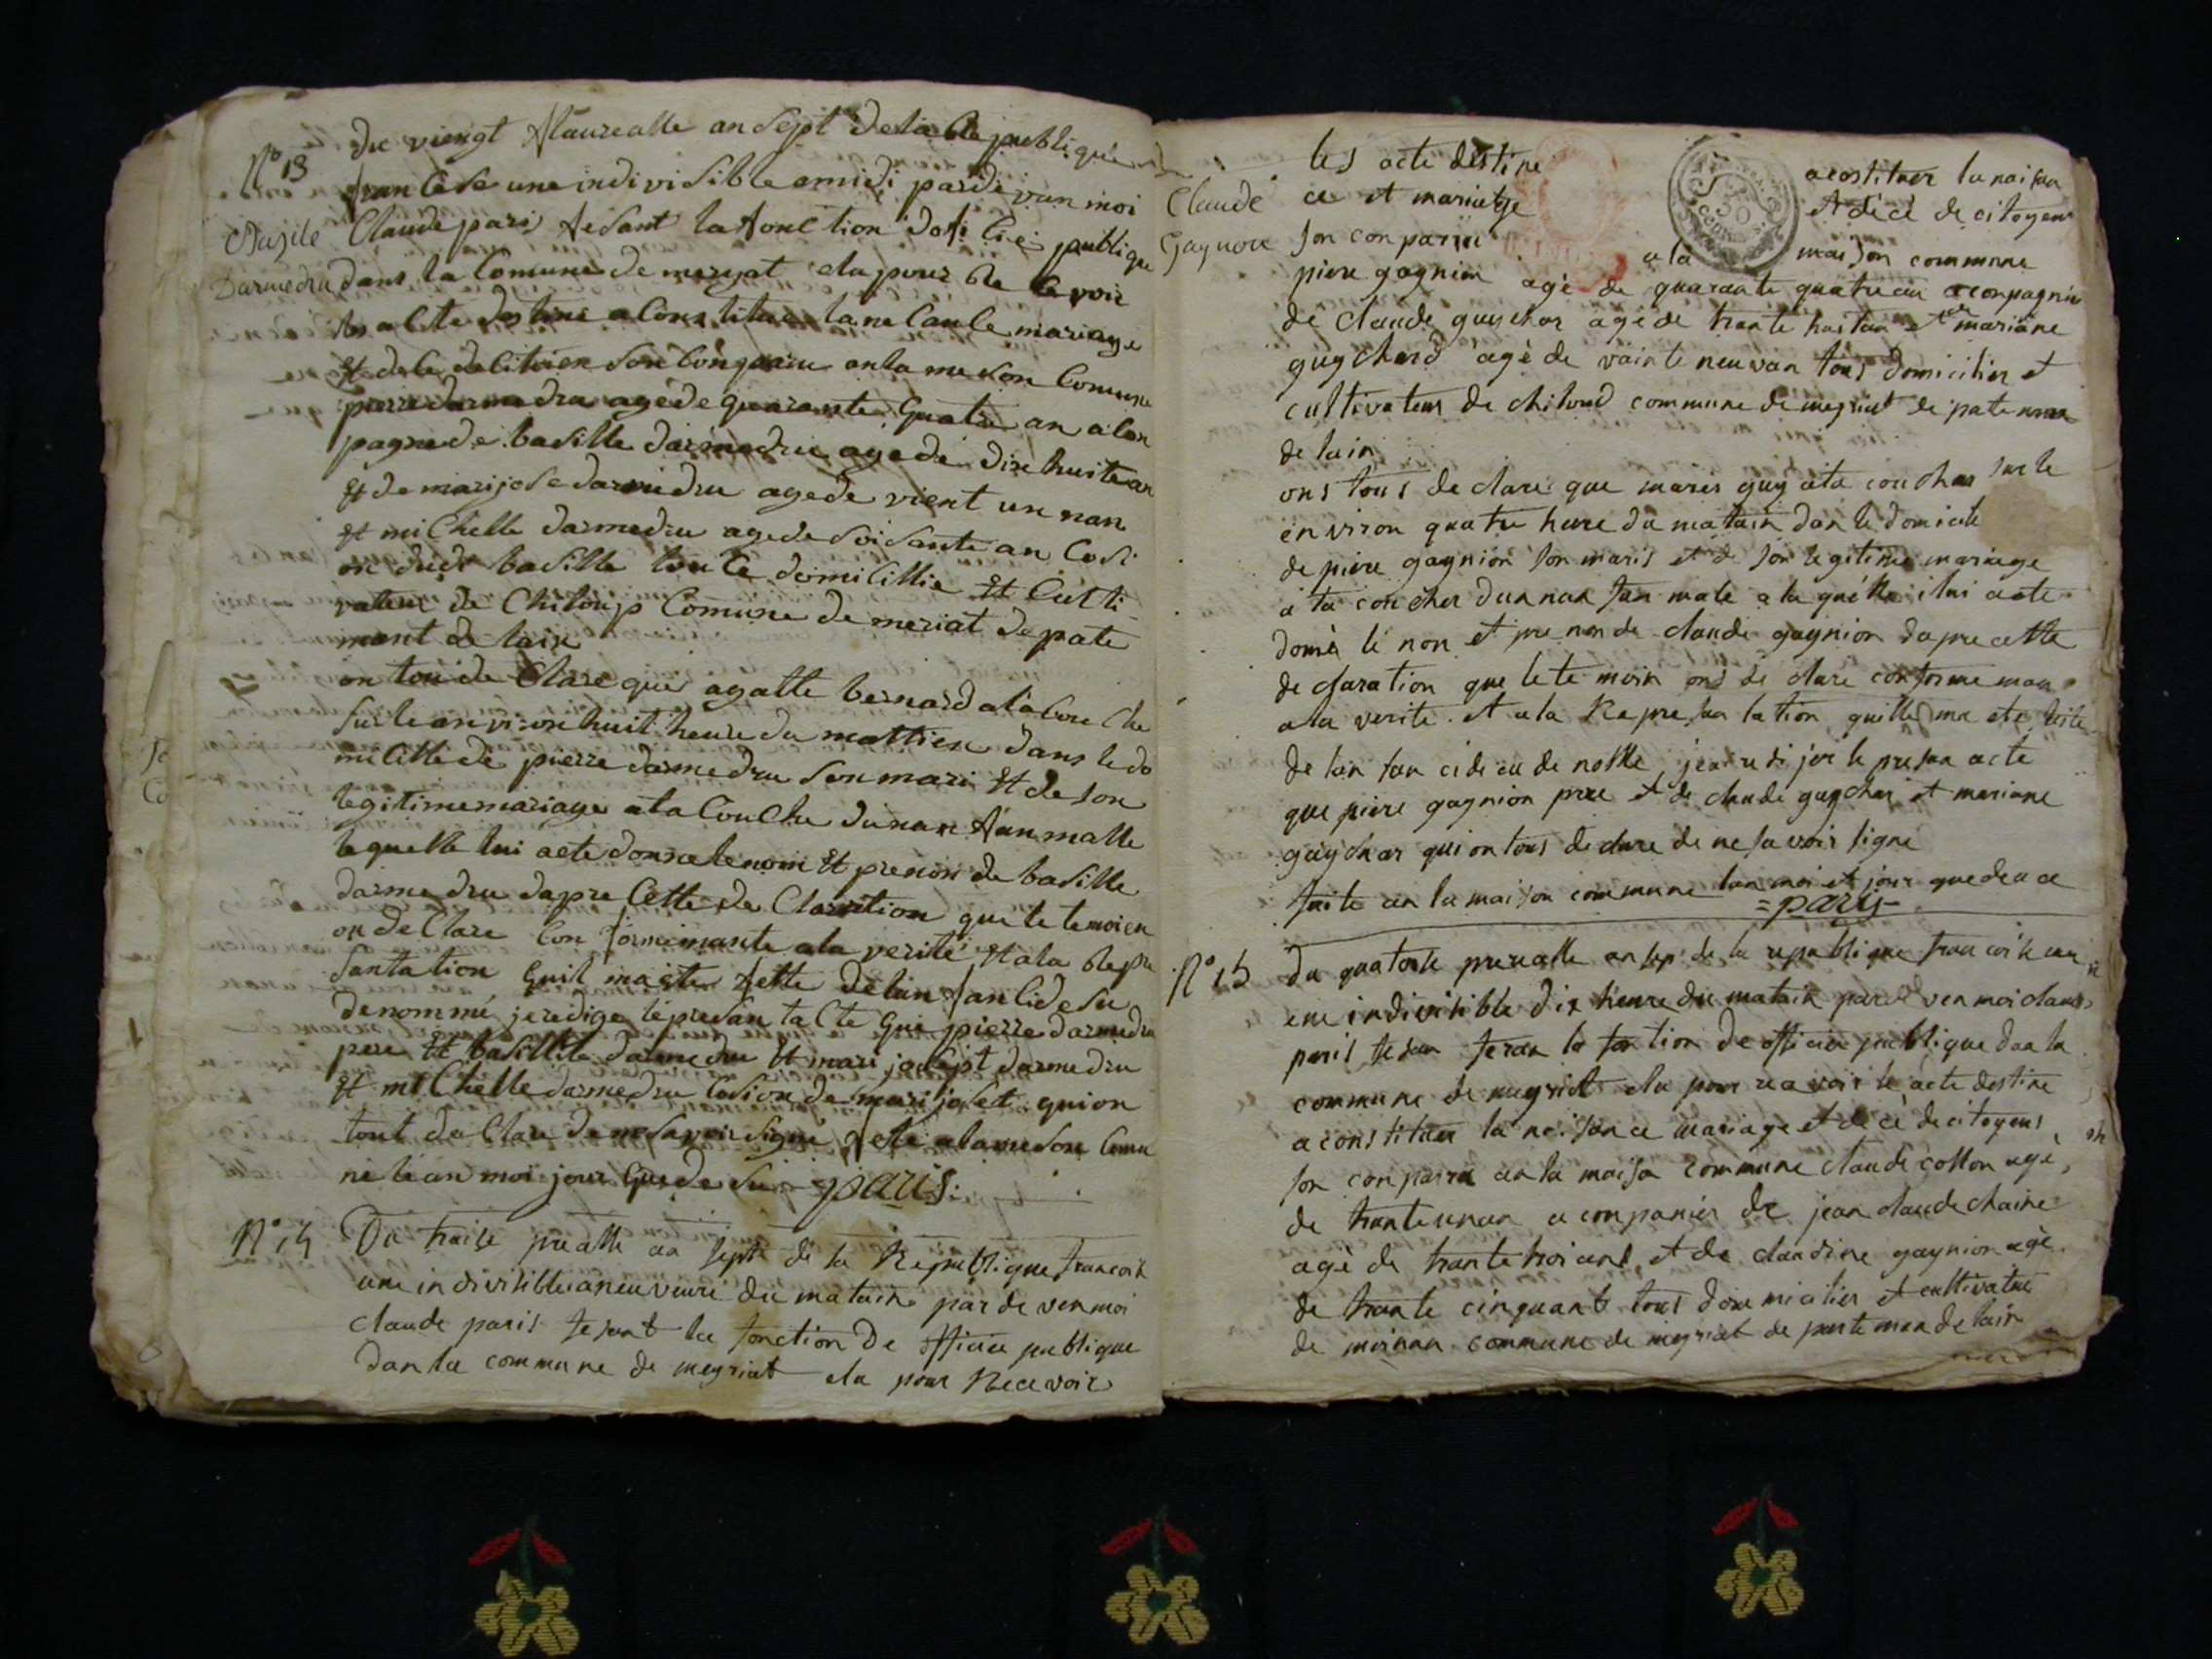 N° 13
Basile
Darmedru
du viengt flaurealle an sept de la Republique
francese une indivisible a midi pardevan moi
Claude paris fesant la fonction dofi cié publique
dans la Comune de meryat elu pour Re Ce voir
les a Cte destine a Constitue la ne Canse mariage
Et dece de Citoien son Conparu an la meson Comune
pierre darmedru agé de quarante quatre an a Con
pagne de basille darmedru age de dix huite an
Et de marijose darmedru age de vient un nan
Et miChelle darmedru age de soisante an Cosi
on dudi basille tou Ce domiCillie Et Culti
vateur de Chiloup Comune de meriat de pate
mant de lain
on tou de Clare que agatte bernard a la Cou Che
sur le anviron huit heure du mattien dans le do
miCille de pierre darmedru son mari Et de son
legitime mariage a ta CouChe dunan fan malle
lequelle lui aete donne le nom Et prenon de basille
darmedru dapre Cette de Claration que le temoien
on de Clare Con formemante a la verité Et a la Repre
santation quil maete fette de lan fan Cide su
denommé je redige le presan ta Cte que pierre darmedru
pere Et basille darmedru Et mari josept darmedru
Et mi Chelle darmedru Cosion de mari joset qui on
tout de Clare de ne savoir signe fete a la meson Comu
ne le an moi jour que de su paris
N° 14
Du traise prealle an sept de la Republique francoise
une indivisible a neu veure du matain par de ven moi
claude paris fesant la fonction De officier publique
Dan la commune de meyriat elu pour Recevoir
Claude
Gagnion
les acte destine acostituer la naisan
ce et mariage et décé de citoyens
son conparu a la maison commune
piere gagnion agé de quarante quatre an aconpagnie
de claude guychar agé de trante huitan et de mariane
guychard agé de vainte neuvan tous domicilier et
cultivateur de chiloud commune de meyriat de patemen
de lain
ons tous de clare que maries guy ata couchar sur le
environ quatre heure du matain dan le domicile
de piere gagnion son maris et de son legitime mariage
a ta coucher dunnan fan male a la quelle il lui aete
donné le non et prenon de claude gagnion dapre cette
declaration que le te moin ons de clare conforme man
a la verite et a la Represan tation quille ma ete faite
de lan fan cide cu de nomme jeai redijer le presan acte
que piere gagnion pere et de claude guychar et mariane
gaychar qui on tous declare de ne savoir signe
faite an la maison commune lan moi et jour que deuce
=paris=
N° 15
du quatorse prereialle an sep de la republique francoise
une indivisible dix heure du matain par de ven moi claude
paris fesan feran la fontion de officier publique dan la
commune de meyriat elu pour reavoir le acte destine
a constituer la naisance mariage et décé de citoyens
son conparu an la maison commune claude collon agé
de trante unan a companier de jean claude chaine
agé de trante trois ans et de claudine gagnion agé
de trante cinquant tous dou micilier et cultivateur
de moinan commune de meyriat de partemen de lain